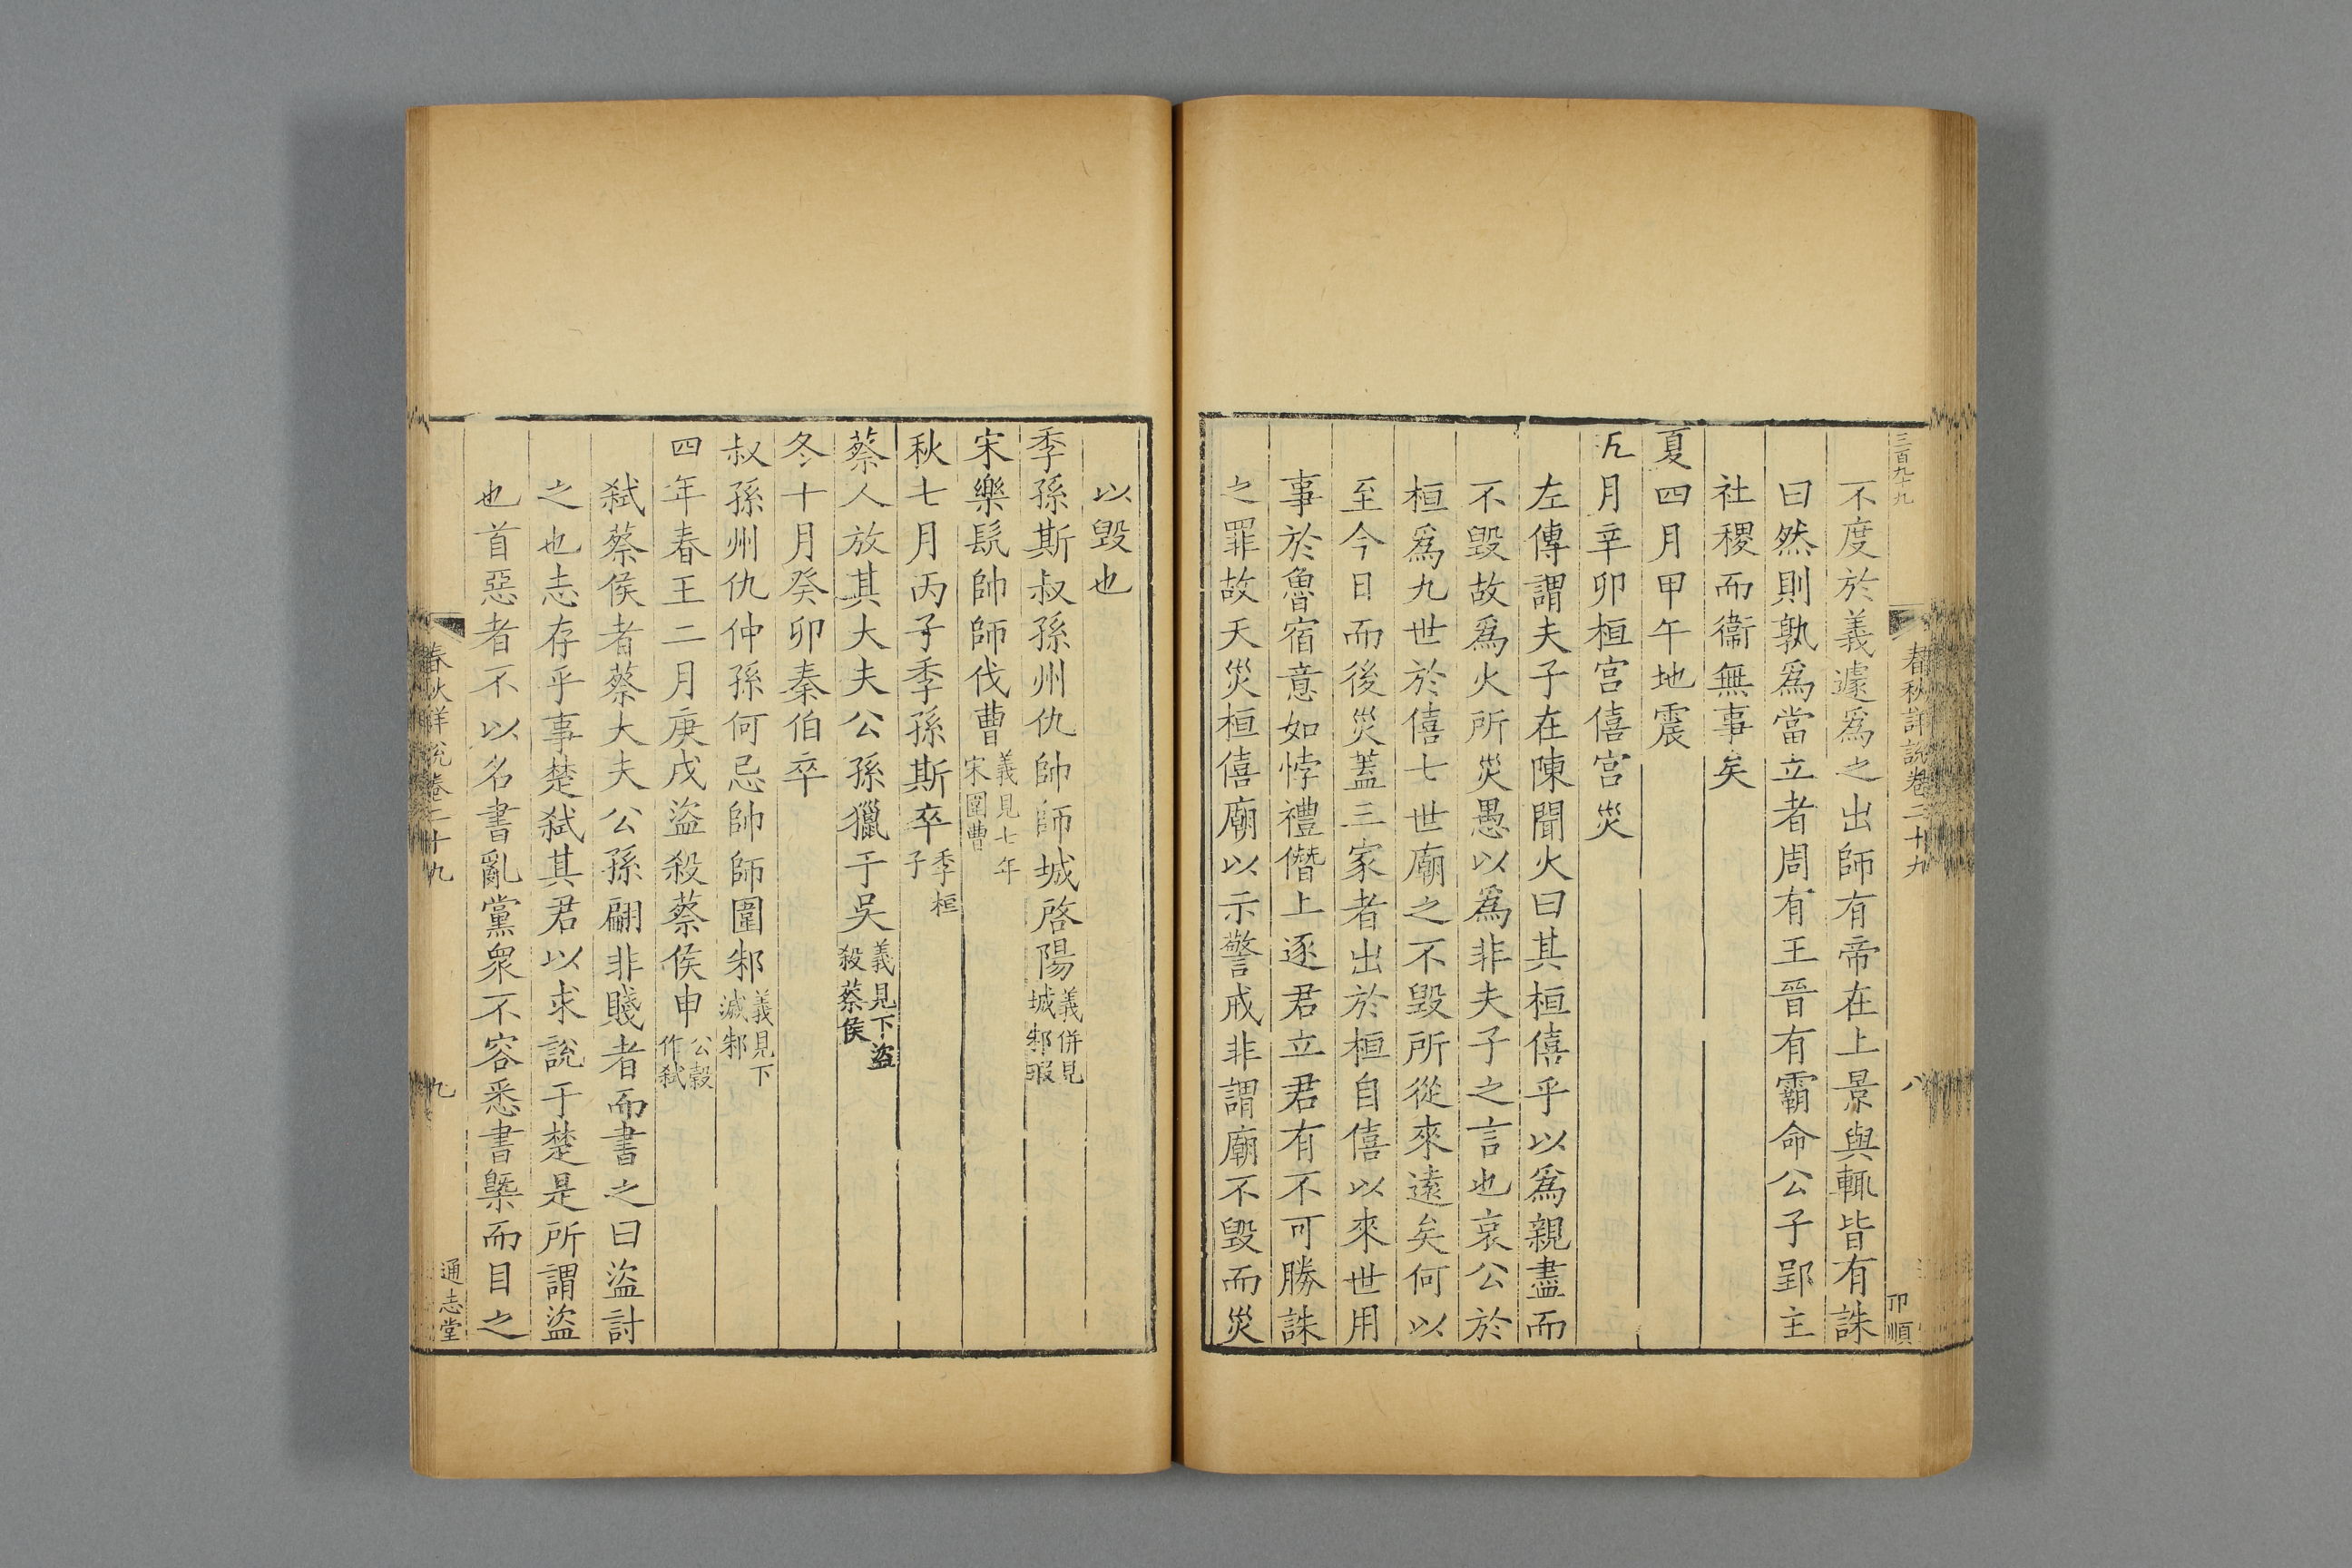 三百九十九
春秋詳說卷二十九
八
卬順
不度於義遽爲之出師有帝在上景與輒皆有誅
曰然則孰爲當立者周有王晉有霸命公子郢主
社稷而衞無事矣
夏四月甲午地震
五月辛卯桓宮僖宮災
左傳謂夫子在陳聞火曰其桓僖乎以爲親盡而
不毀故爲火所災愚以爲非夫子之言也哀公於
桓爲九世於僖七世廟之不毀所從來遠矣何以
至今日而後災蓋三家者出於桓自僖以來世用
事於魯宿意如悖禮僭上逐君立君有不可勝誅
之罪故天災桓僖廟以示警戒非謂廟不毀而災
以毀也
季孫斯叔孫州仇帥師城啓陽義併見城邾瑕
宋樂髡帥師伐曹義見七年宋圍曹
秋七月丙子季孫斯卒季桓子
蔡人放其大夫公孫獵于吳義見下盜殺蔡侯
冬十月癸卯秦伯卒
叔孫州仇仲孫何忌帥師圍邾義見下滅邾
四年春王二月庚戌盜殺蔡侯申公穀作弒
弒蔡侯者蔡大夫公孫翩非賤者而書之曰盜討
之也志存乎事楚弒其君以求說于楚是所謂盜
也首惡者不以名書亂黨衆不容悉書槩而目之
春秋詳說卷二十九
九
通志堂